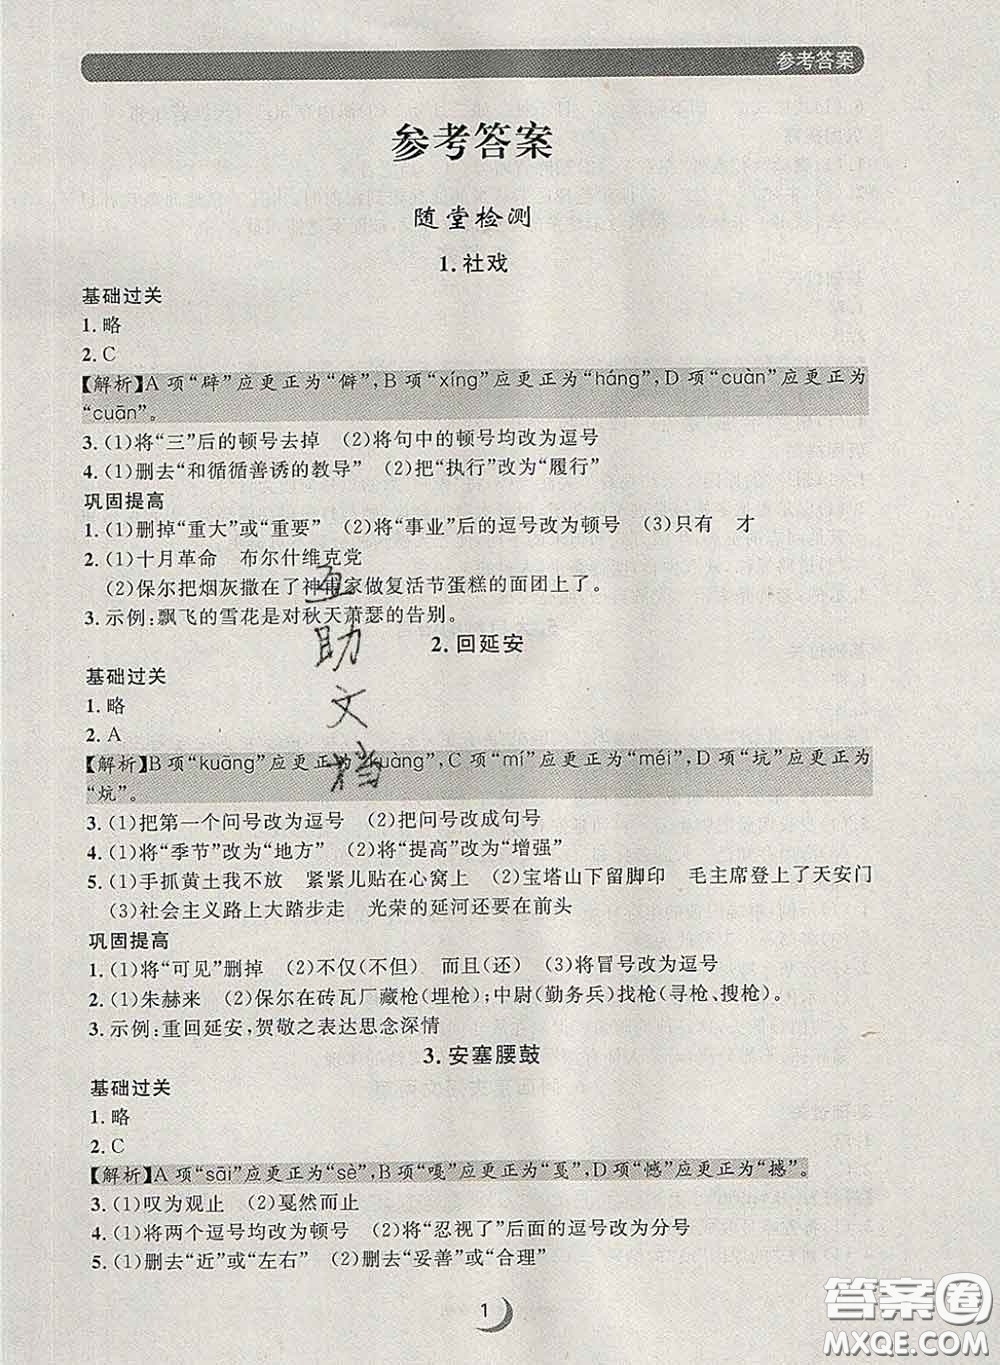 参考答案
参考答案
随堂检测
1.社戏
基础过关
1.略
2.C
【解析】A 项“辟”应更正为“僻”,B 项“xíng”应更正为“háng”,D 项“cuàn”应更正为
“cuān”。
3.(1)将“三”后的顿号去掉 (2)将句中的顿号均改为逗号
4.(1)删去“和循循善诱的教导” (2)把“执行”改为“履行”
巩固提高
1.(1)删掉“重大”或“重要” (2)将“事业”后的逗号改为顿号 (3)只有 才
2.(1)十月革命 布尔什维克党
(2)保尔把烟灰撒在了神甫家做复活节蛋糕的面团上了。
3.示例:飘飞的雪花是对秋天萧瑟的告别。
2.回延安
基础过关
1.略
2.A
【解析】B 项“kuāng”应更正为“kuàng”,C 项“mí”应更正为“méi”,D 项“坑”应更正为
“炕”。
3.(1)把第一个问号改为逗号 (2)把问号改成句号
4.(1)将“季节”改为“地方” (2)将“提高”改为“增强”
5.(1)手抓黄土我不放 紧紧儿贴在心窝上 (2)宝塔山下留脚印 毛主席登上了天安门
(3)社会主义路上大踏步走 光荣的延河还要在前头
巩固提高
1.(1)将“可见”删掉 (2)不仅(不但) 而且(还) (3)将冒号改为逗号
2.(1)朱赫来 (2)保尔在砖瓦厂藏枪(埋枪);中尉(勤务兵)找枪(寻枪、搜枪)。
3.示例:重回延安,贺敬之表达思念深情
3.安塞腰鼓
基础过关
1.略
2.C
【解析】A 项“sāi”应更正为“sè”,B项“嘎”应更正为“戛”,D项“憾”应更正为“撼”。
3.(1)叹为观止 (2)戛然而止
4.(1)将两个逗号均改为顿号 (2)将“忍视了”后面的逗号改为分号
5.(1)删去“近”或“左右” (2)删去“妥善”或“合理”
1
助
文
档
答案圈
MXQE.COM